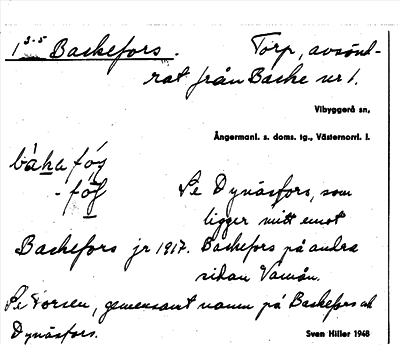 1 3-5 Backefors. Torp, avsönd-
rat från Backe nr 1.
Vibyggerå sn,
Ångermanl. s. doms. tg., Västernorrl. l.
Se Dynäsfors, som
ligger mitt emot
Backefors jr 1917. Backefors på andra
sidan Vamån.
Se Forsen, gemensamt namn på Backefors och
Dynäsfors.
Sven Hiller 1948